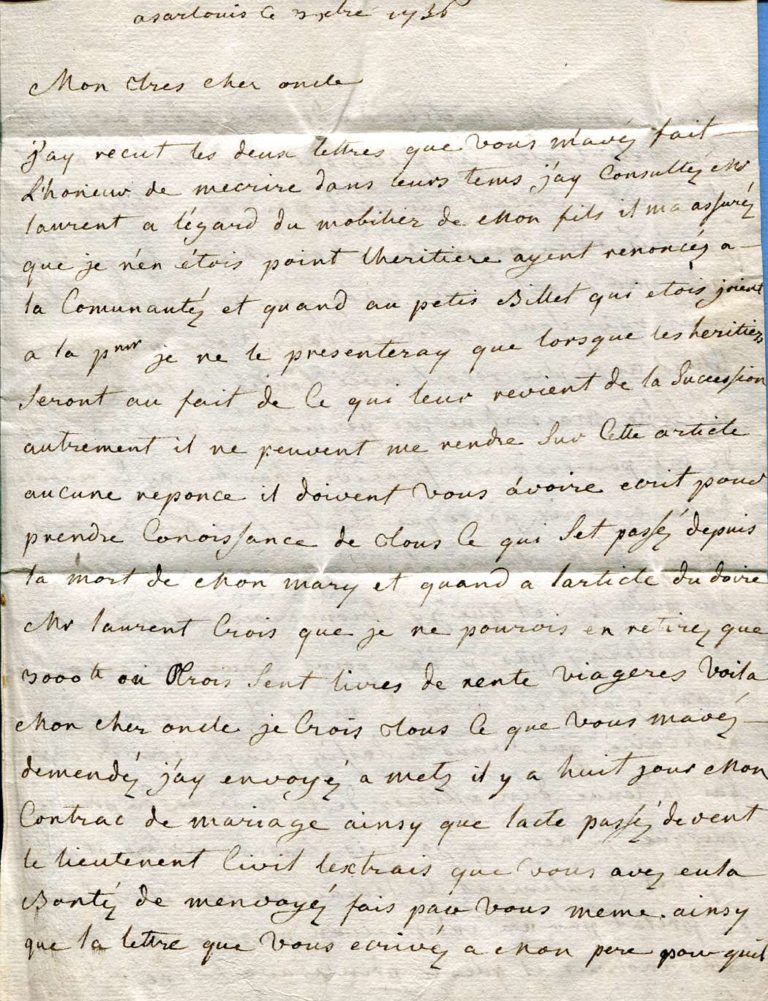 asarlouis ce 3 xbre 1736
Mon tres cher oncle
j'ay recut les deux lettres que vous m'avéz fait
L'honieur de mecrire dans leurs tems j'ay Consultéz Mr
laurent a légard du mobilier de Mon fils il ma assuréz
que je n'en étois point lheritiere ayent renoncéz a
la Comunautéz et quand au petis Billet qui etois joient
a la pmr je ne le presenteray que lorsque les heritiers
Seront au fait de Ce qui leur revient de la Succession
autrement il ne peuvent me rendre Sur Cette article
aucune reponce il doivent vous avoire ecrit pour
prendre Conoissance de tous Ce qui Set passéz depuis
la mort de Mon mary et quand a larticle du doire
Mr laurent Crois que je ne pourois en retirez que
3000tt ou trois Sent livres de rente viageres Voila
Mon cher oncle je Crois tous Ce que vous mavéz
demendéz j'ay envoyéz a metz il y a huit jour Mon
Contrac de mariage ainsy que lacte passéz devent
le lieutenent Civil lextrais que vous avez eula
Bontéz de menvoyéz fais par vous meme. ainsy
que la lettre que vous ecrivéz a Mon pere pour quil